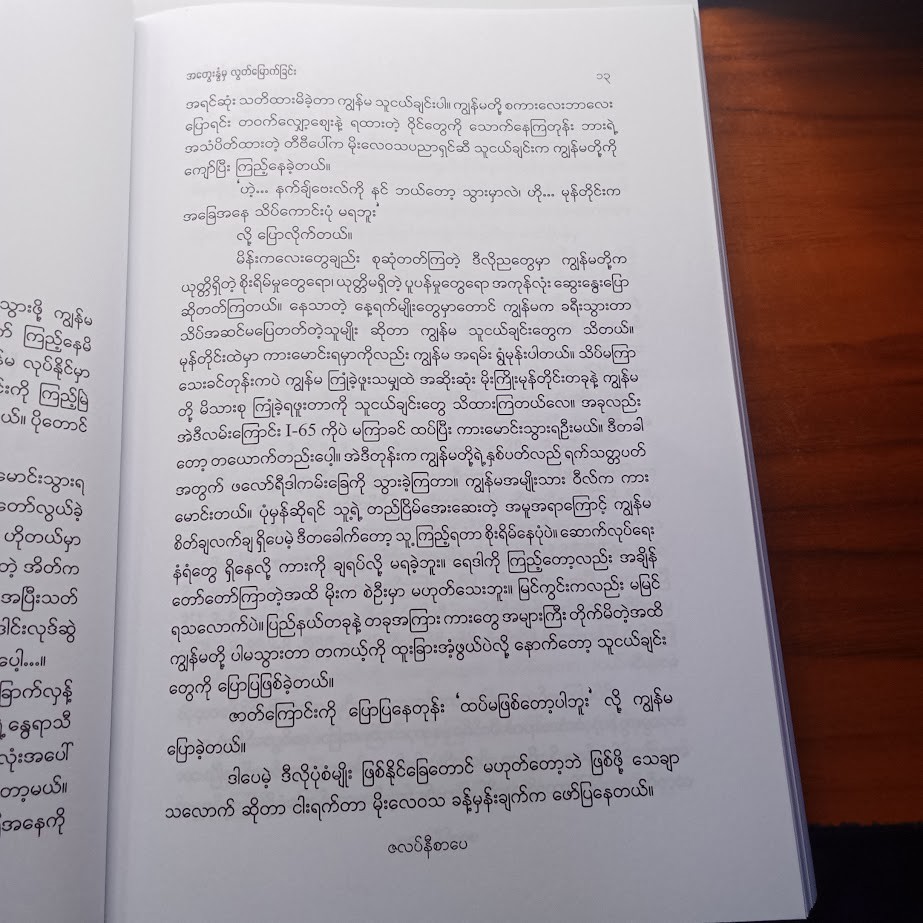 သွားဖို့ ကျွန်မ
ကြည့်နေမိ
လုပ်နိုင်မှာ
ကြည့်မြဲ
ပိုတောင်
မောင်းသွားရ
တော်လွယ်ခဲ့
ဟိုတယ်မှာ
အိတ်က
အပြီးသတ်
ခေါင်းလုဒ်ဆွဲ
ပေါ့...။
ခြောက်လှန့်
နွေရာသီ
လုံးအပေါ်
အနေကို
အတွေးနွံမှ လွတ်မြောက်ခြင်း ၁၃
အရင်ဆုံး သတိထားမိခဲ့တာ ကျွန်မ သူငယ်ချင်းပါ။ ကျွန်မတို့ စကားလေးဘာလေး
ပြောရင်း တဝက်လျှော့ဈေးနဲ့ ရထားတဲ့ ဝိုင်တွေကို သောက်နေကြတုန်း ဘားရဲ့
အသံပိတ်ထားတဲ့ တီဗီပေါ်က မိုးလေဝသပညာရှင်ဆီ သူငယ်ချင်းက ကျွန်မတို့ကို
ကျော်ပြီး ကြည့်နေခဲ့တယ်။
‘ဟဲ့... နက်ခ်ျဗေးလ်ကို နင် ဘယ်တော့ သွားမှာလဲ၊ ဟို... မုန်တိုင်းက
အခြေအနေ သိပ်ကောင်းပုံ မရဘူး’
လို့ ပြောလိုက်တယ်။
မိန်းကလေးတွေချည်း စုဆုံတတ်ကြတဲ့ ဒီလိုညတွေမှာ ကျွန်မတို့က
ယုတ္တိရှိတဲ့ စိုးရိမ်မှုတွေရော၊ ယုတ္တိမရှိတဲ့ ပူပန်မှုတွေရော အကုန်လုံး ဆွေးနွေးပြော
ဆိုတတ်ကြတယ်။ နေသာတဲ့ နေ့ရက်မျိုးတွေမှာတောင် ကျွန်မက ခရီးသွားတာ
သိပ်အဆင်မပြေတတ်တဲ့သူမျိုး ဆိုတာ ကျွန်မ သူငယ်ချင်းတွေက သိတယ်။
မုန်တိုင်းထဲမှာ ကားမောင်းရမှာကိုလည်း ကျွန်မ အရမ်း ရွံမုန်းပါတယ်။ သိပ်မကြာ
သေးခင်တုန်းကပဲ ကျွန်မ ကြုံခဲ့ဖူးသမျှထဲ အဆိုးဆုံး မိုးကြိုးမုန်တိုင်းတခုနဲ့ ကျွန်မ
တို့ မိသားစု ကြုံခဲ့ရဖူးတာကို သူငယ်ချင်းတွေ သိထားကြတယ်လေ။ အခုလည်း
အဲဒီလမ်းကြောင်း I-65 ကိုပဲ မကြာခင် ထပ်ပြီး ကားမောင်းသွားရဦးမယ်။ ဒီတခါ
တော့ တယောက်တည်းပေါ့။ အဲဒီတုန်းက ကျွန်မတို့ရဲ့ နှစ်ပတ်လည် ရက်သတ္တပတ်
အတွက် ဖလော်ရီဒါကမ်းခြေကို သွားခဲ့ကြတာ။ ကျွန်မအမျိုးသား ဝီလ်က ကား
မောင်းတယ်။ ပုံမှန်ဆိုရင် သူ့ရဲ့ တည်ငြိမ်အေးဆေးတဲ့ အမူအရာကြောင့် ကျွန်မ
စိတ်ချလက်ချ ရှိပေမဲ့ ဒီတခေါက်တော့ သူ့ကြည့်ရတာ စိုးရိမ်နေပုံပဲ။ ဆောက်လုပ်ရေး
နံရံတွေ ရှိနေလို့ ကားကို ချရပ်လို့ မရခဲ့ဘူး။ ရေဒါကို ကြည့်တော့လည်း အချိန်
တော်တော်ကြာတဲ့အထိ မိုးက စဲဦးမှာ မဟုတ်သေးဘူး။ မြင်ကွင်းကလည်း မမြင်
ရသလောက်ပဲ။ ပြည်နယ်တခုနဲ့ တခုအကြား ကားတွေ အများကြီး တိုက်မိတဲ့အထိ
ကျွန်မတို့ ပါမသွားတာ တကယ့်ကို ထူးခြားအံ့ဖွယ်ပဲလို့ နောက်တော့ သူငယ်ချင်း
တွေကို ပြောပြဖြစ်ခဲ့တယ်။
ဇာတ်ကြောင်းကို ပြောပြနေတုန်း ‘ထပ်မဖြစ်တော့ပါဘူး’ လို့ ကျွန်မ
ပြောခဲ့တယ်။
ဒါပေမဲ့ ဒီလိုပုံစံမျိုး ဖြစ်နိုင်ခြေတောင် မဟုတ်တော့ဘဲ ဖြစ်ဖို့ သေချာ
သလောက် ဆိုတာ ငါးရက်တာ မိုးလေဝသ ခန့်မှန်းချက်က ဖော်ပြနေတယ်။
ဇလပ်နီစာပေ